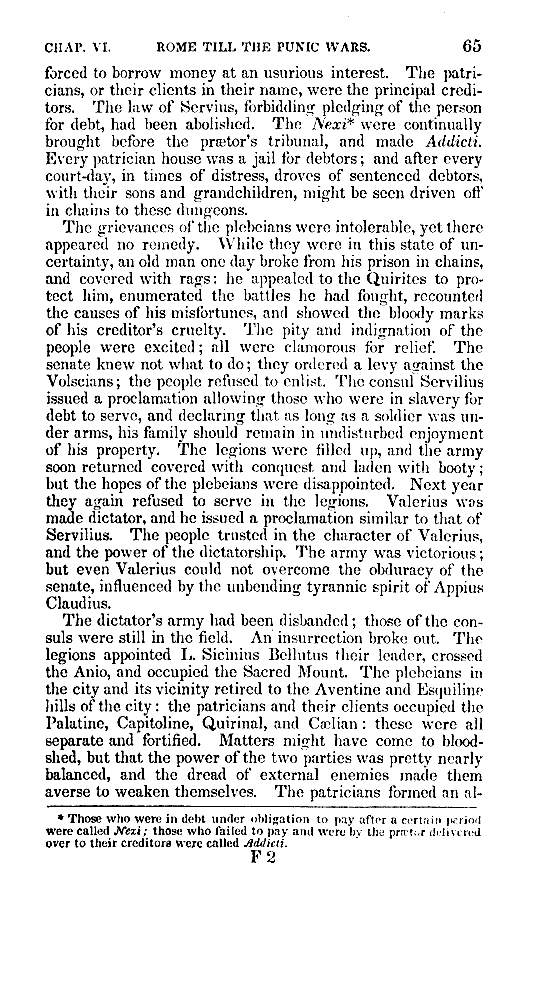 CHAP. VI. ROME TILL THE PUNIC WARS. 65
forced to borrow money at an usurious interest. The patri-
cians, or their clients in their name, were the principal credi-
tors. The law of Servius, forbidding pledging of the person
for debt, had been abolished. The Nexi* were continually
brought before the prætor's tribunal, and made Addicti.
Every patrician house was a jail for debtors; and after every
court-day, in times of distress, droves of sentenced debtors,
with their sons and grandchildren, might be seen driven off
in chains to these dungeons.
The grievances of the plebeians were intolerable, yet there
appeared no remedy. While they were in this state of un-
certainty, an old man one day broke from his prison in chains,
and covered with rags: he appealed to the Quirites to pro-
tect him, enumerated the battles he had fought, recounted
the causes of his misfortunes, and showed the bloody marks
of his creditor's cruelty. The pity and indignation of the
people were excited; all were clamorous for relief. The
senate knew not what to do; they ordered a levy against the
Volscians; the people refused to enlist. The consul Servilius
issued a proclamation allowing those who were in slavery for
debt to serve, and declaring that as long as a soldier was un-
der arms, his family should remain in undisturbed enjoyment
of his property. The legions were filled up, and the army
soon returned covered with conquest and laden with booty;
but the hopes of the plebeians were disappointed. Next year
they again refused to serve in the legions. Valerius was
made dictator, and he issued a proclamation similar to that of
Servilius. The people trusted in the character of Valerius,
and the power of the dictatorship. The army was victorious;
but even Valerius could not overcome the obduracy of the
senate, influenced by the unbending tyrannic spirit of Appius
Claudius.
The dictator's army had been disbanded; those of the con-
suls were still in the field. An insurrection broke out. The
legions appointed L. Sicinius Bellutus their leader, crossed
the Anio, and occupied the Sacred Mount. The plebeians in
the city and its vicinity retired to the Aventine and Esquiline
hills of the city: the patricians and their clients occupied the
Palatine, Capitoline, Quirinal, and Cælian: these were all
separate and fortified. Matters might have come to blood-
shed, but that the power of the two parties was pretty nearly
balanced, and the dread of external enemies made them
averse to weaken themselves. The patricians formed an al-
* Those who were in debt under obligation to pay after a certain period
were called Nexi; those who failed to pay and were by the prætor delivered
over to their creditors were called Addicti.
F 2